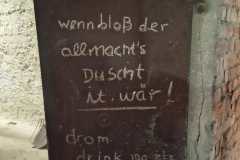 wenn bloß der
allmacht's
Duscht
it. wär!
drom
drink